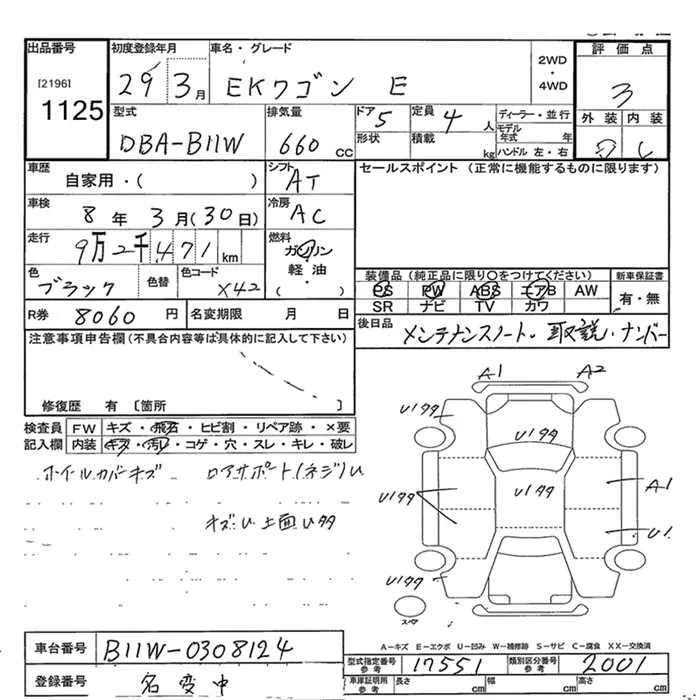 出品番号 初度登録年月 車名・グレード 2WD・4WD 評価点
[2196] 1125 29 3月 EKワゴン E 3
型式 排気量 ドア 5 定員 4人 ディーラー・並行 外装 内装
DBA-B11W 660cc 形状 積載 kg モデル年式 年 ハンドル 左・右
車歴 自家用・( ) シフト AT セールスポイント (正常に機能するものに限ります)
車検 8年 3月(30日) 冷房 AC
走行 9万2千471km 燃料 ガソリン 軽・油 ( )
色 ブラック 色替 色コード X42
装備品(純正品に限り○をつけてください) 新車保証書
PS PW ABS エアB AW 有・無
SR ナビ TV カワ
R券 8060円 名変期限 月 日
後日品 メンテナンスノート・取説・ナンバー
注意事項申告欄(不具合内容等は具体的に記入して下さい)
修復歴 有 [箇所 ]
検査員記入欄 FW キズ・飛石・ヒビ割・リペア跡・×要
内装 キズ・汚レ・コゲ・穴・スレ・キレ・破レ
ホイールカバーキズ ロアサポート(ネジ)U
A1 A2
Uｱﾀ
Uｱﾀ
Uｱﾀ
Uｱﾀ
A1
U1
Uｱﾀ
スペア
A－キズ E－エクボ U－凹み W－補修跡 S－サビ C－腐食 XX－交換済
車台番号 B11W-0308124
型式指定番号 参考 17551 類別区分番号 参考 2001
登録番号 名変中
車庫証明用 参考 長さ cm 幅 cm 高さ cm